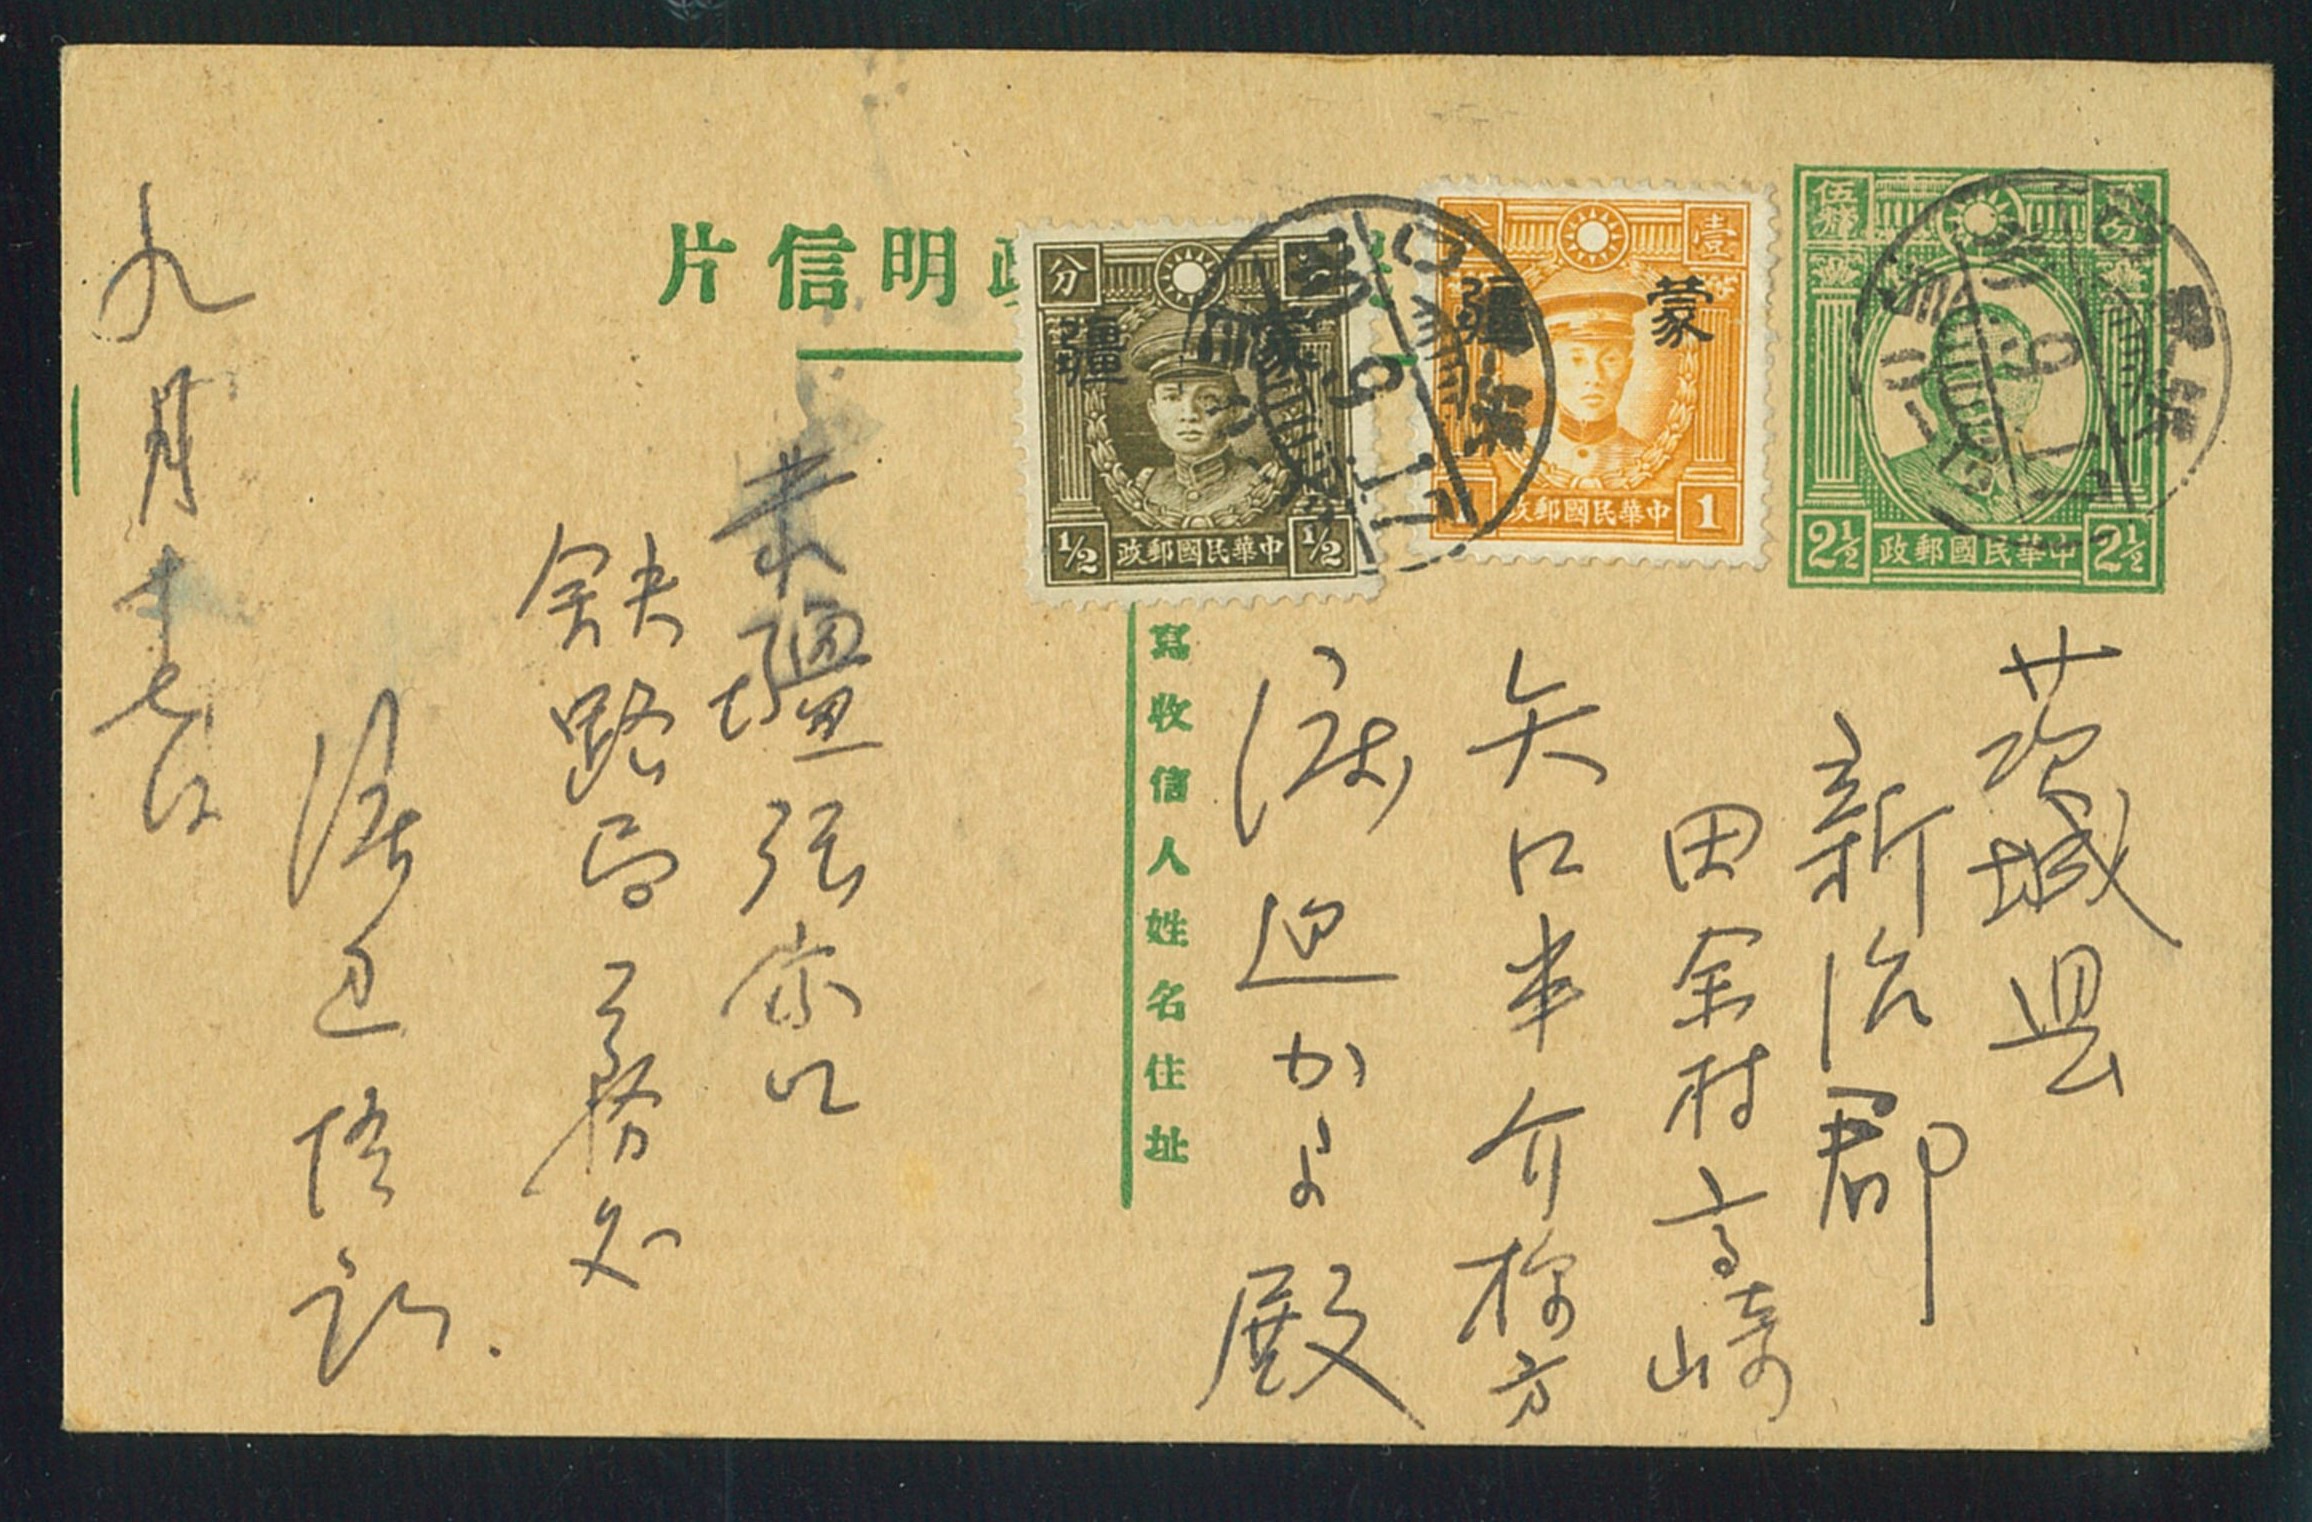 政明信片
伍釐 分
2½ 中華民國郵政 2½
壹 分
蒙疆
中華民國郵政 1
分
蒙疆
½ 中華民國郵政 ½
寫收信人姓名住址
茨城県
新治郡
田余村高崎
矢口半介様方
渡辺かよ殿
疆張家口
鉄路局工務処
渡辺
九月十七日